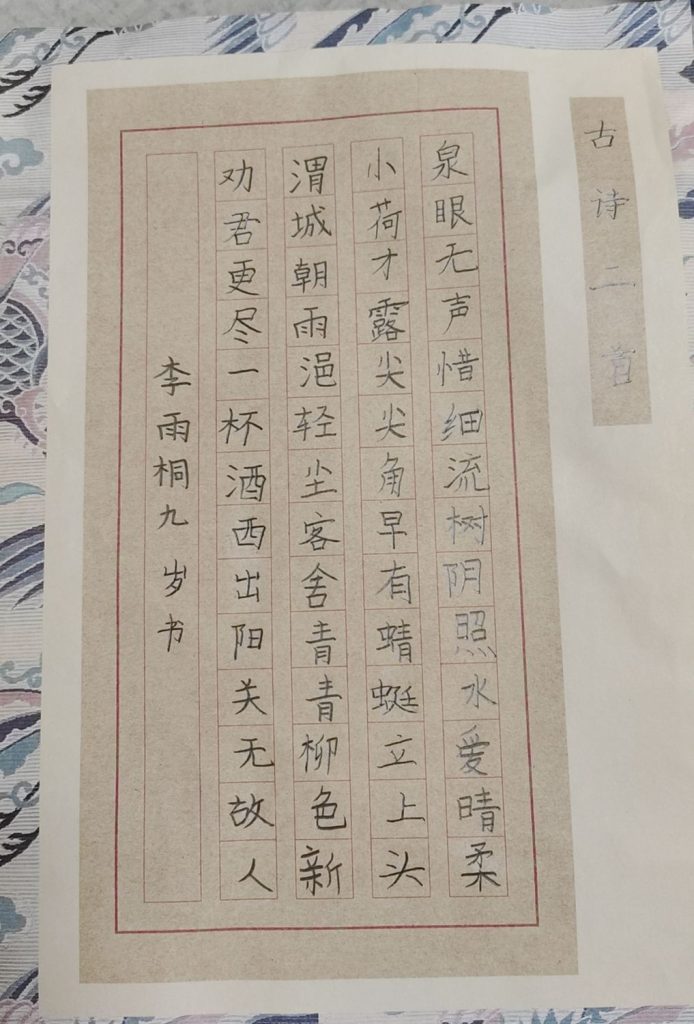 古诗二首
泉眼无声惜细流树阴照水爱晴柔
小荷才露尖尖角早有蜻蜓立上头
渭城朝雨浥轻尘客舍青青柳色新
劝君更尽一杯酒西出阳关无故人
李雨桐九岁书